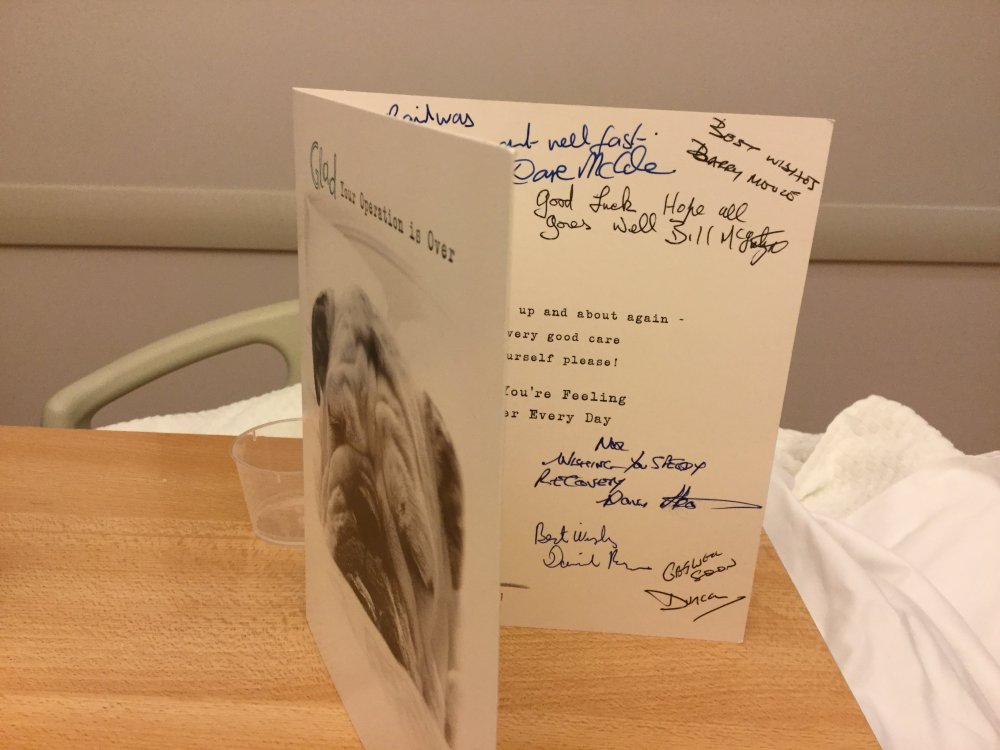 Glad Your Operation is Over
well fast.
Dave McCole
BEST WISHES
BARRY
Good Luck Hope all
goes well Bill
up and about again -
very good care
urself please!
You're Feeling
er Every Day
WISHING YOU SPEEDY
RECOVERY
Best Wishes
David
GET WELL
SOON
Duncan